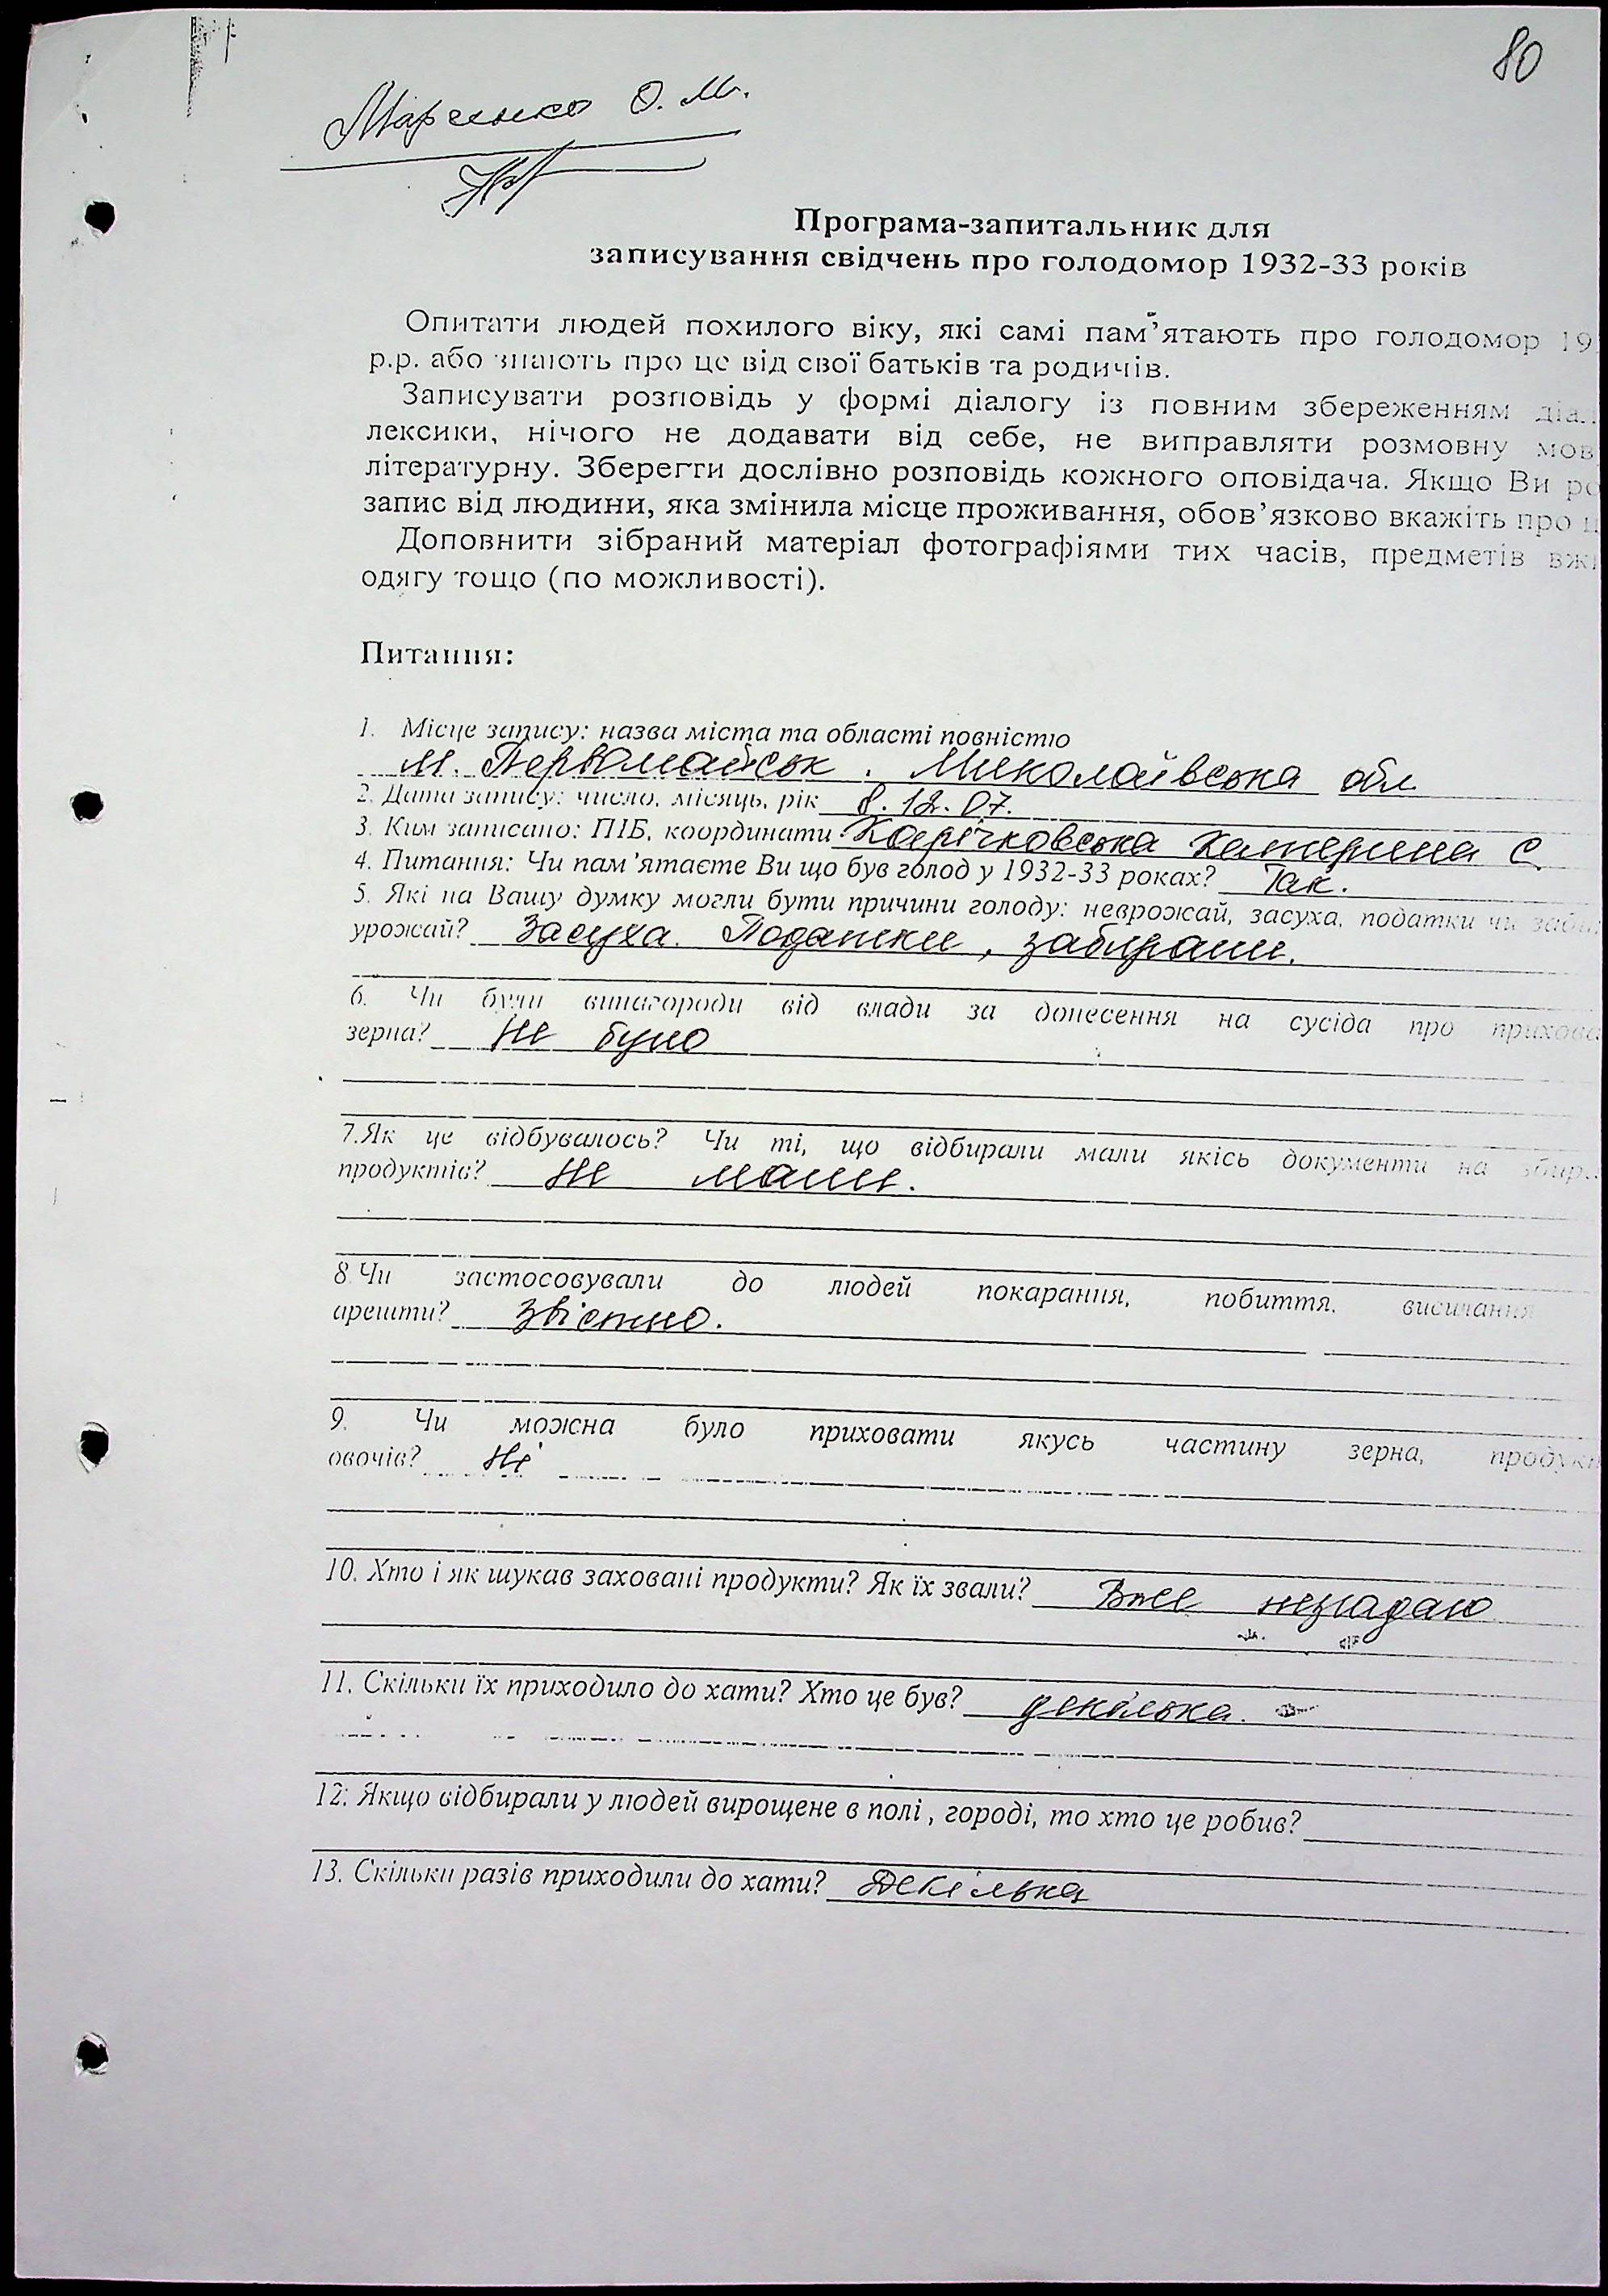 80
О. М.
Програма-запитальник для
записування свідчень про голодомор 1932-33 років
Опитати людей похилого віку, які самі пам’ятають про голодомор 19
р.р. або знають про це від свої батьків та родичів.
Записувати розповідь у формі діалогу із повним збереженням діал
лексики, нічого не додавати від себе, не виправляти розмовну мов
літературну. Зберегти дослівно розповідь кожного оповідача. Якщо Ви ро
запис від людини, яка змінила місце проживання, обов’язково вкажіть про ц
Доповнити зібраний матеріал фотографіями тих часів, предметів вж
одягу тощо (по можливості).
Питання:
1. Місце запису: назва міста та області повністю
м. Первомайськ. Миколаївська обл.
2. Дата запису: число, місяць, рік 8.12.07.
3. Ким записано: ПІБ, координати Катерина С.
4. Питання: Чи пам’ятаєте Ви що був голод у 1932-33 роках? Так.
5. Які на Вашу думку могли бути причини голоду: неврожай, засуха, податки чи заби
урожай? Засуха. Податки, забирали.
6. Чи були винагороди від влади за донесення на сусіда про прихова
зерна? Не було
7.Як це відбувалось? Чи ті, що відбирали мали якісь документи на збир
продуктів? Не мали.
8.Чи застосовували до людей покарання, побиття, висилання
арешти? Звістно.
9. Чи можна було приховати якусь частину зерна, продук
овочів? Ні
10. Хто і як шукав заховані продукти? Як їх звали? Вже незгадаю
11. Скільки їх приходило до хати? Хто це був? декілька.
12. Якщо відбирали у людей вирощене в полі, городі, то хто це робив?
13. Скільки разів приходили до хати? Декілька